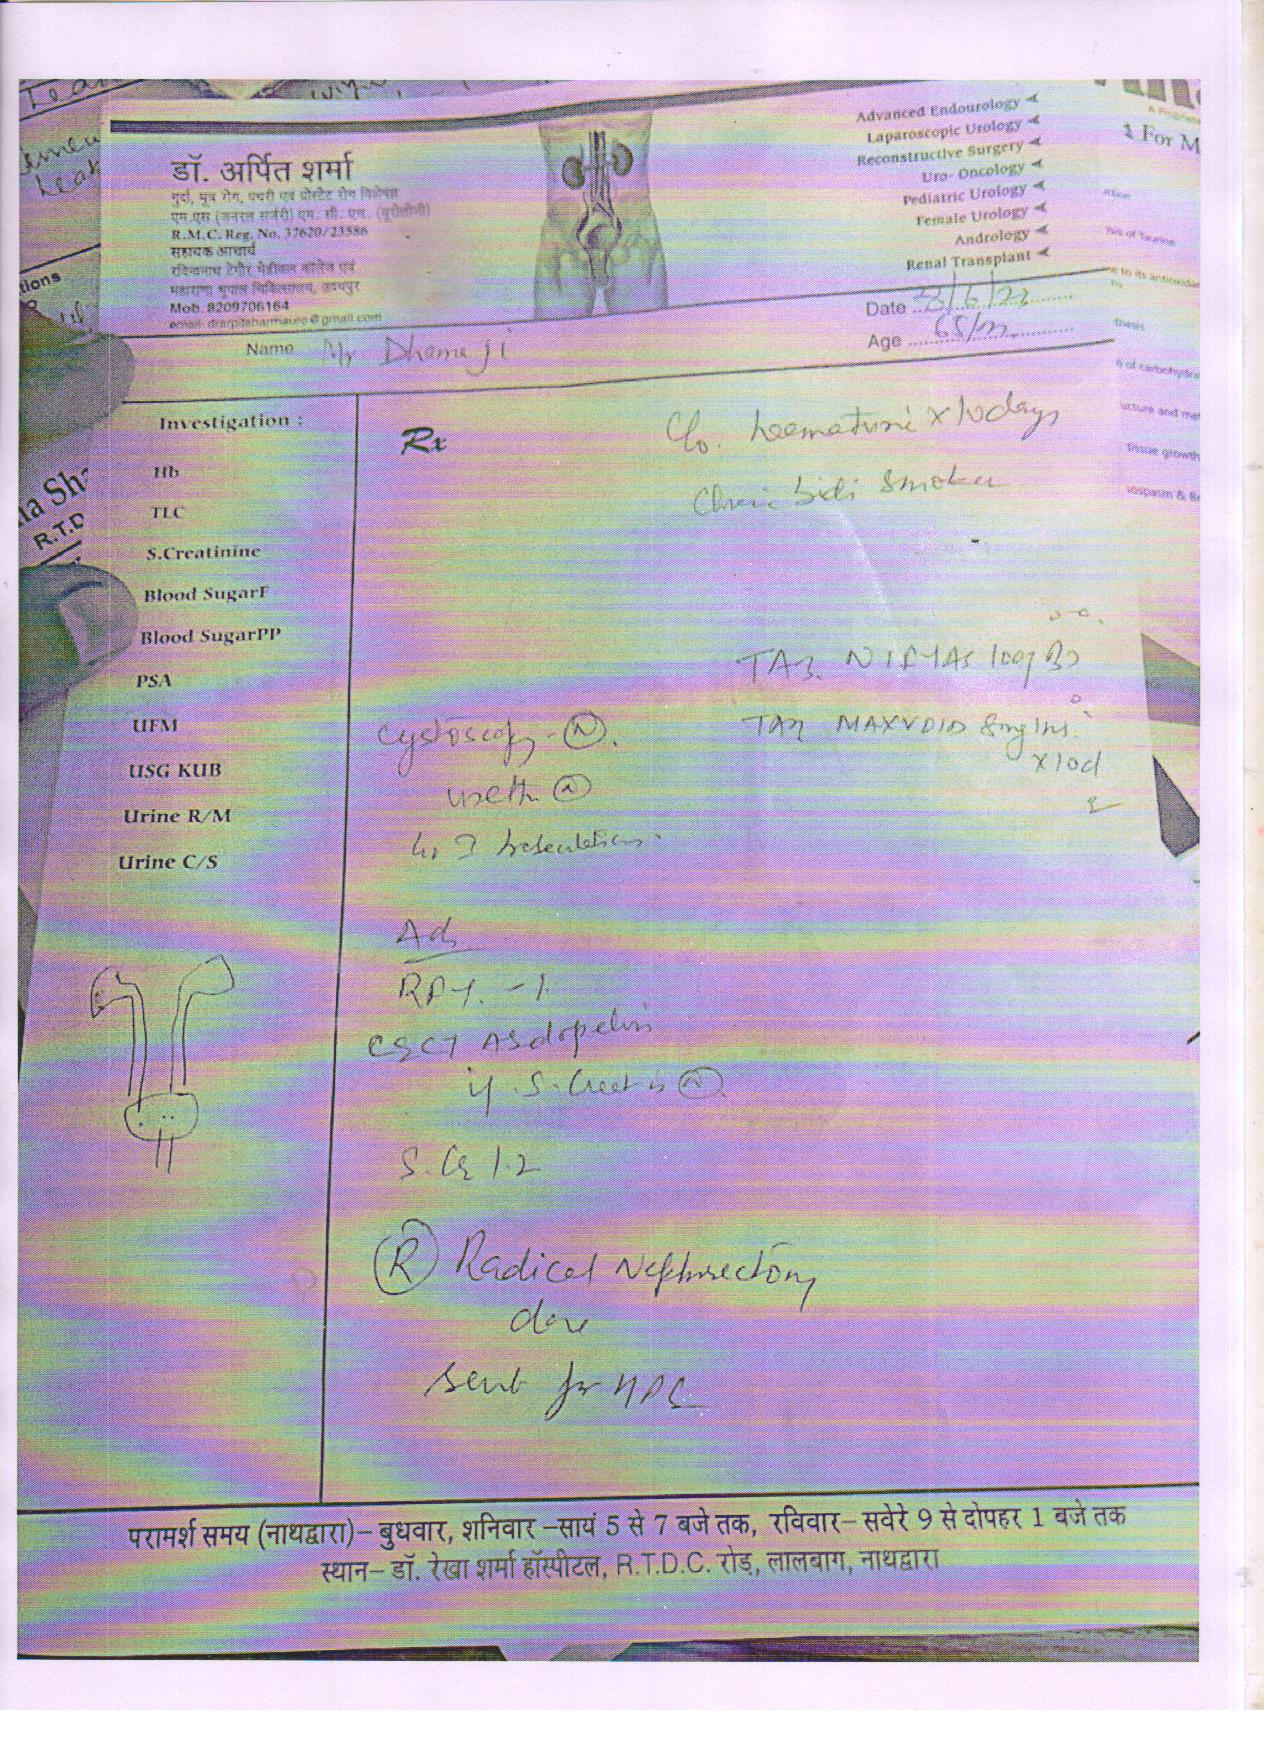 डॉ. अर्पित शर्मा
गुर्दा, मूत्र रोग, पथरी एवं प्रोस्टेट रोग विशेषज्ञ
एम.एस (जनरल सर्जरी) एम. सी. एच. (यूरोलोजी)
R.M.C. Reg. No. 37620/23586
सहायक आचार्य
रविन्द्रनाथ टैगोर मेडीकल कॉलेज एवं
महाराणा भूपाल चिकित्सालय, उदयपुर
Mob. 8209706164
email- drarpitsharmauro@gmail.com
Advanced Endourology
Laparoscopic Urology
Reconstructive Surgery
Uro- Oncology
Pediatric Urology
Female Urology
Andrology
Renal Transplant
Date
Age 65/m
Name Mr Dhame ji
For M
sis of Taurine
to its antioxidan
thesis
of carbohydra
ucture and me
Tissue growth
iospasm & B
ia Sha
R.T.D
tions
Investigation :
Hb
TLC
S.Creatinine
Blood SugarF
Blood SugarPP
PSA
UFM
USG KUB
Urine R/M
Urine C/S
Rx
C/o. heematurie x 10days
Chronic bidi smoker
TAB.
TAB MAXVOID 8mg
x10d
Cystoscopy - N.
ureth N
Adv
CECT
if S. Creat is N
S. Cr 1.2
R Radical Nephrectomy
done
sent for HPE
परामर्श समय (नाथद्वारा)– बुधवार, शनिवार –सायं 5 से 7 बजे तक, रविवार– सवेरे 9 से दोपहर 1 बजे तक
स्थान– डॉ. रेखा शर्मा हॉस्पीटल, R.T.D.C. रोड़, लालबाग, नाथद्वारा